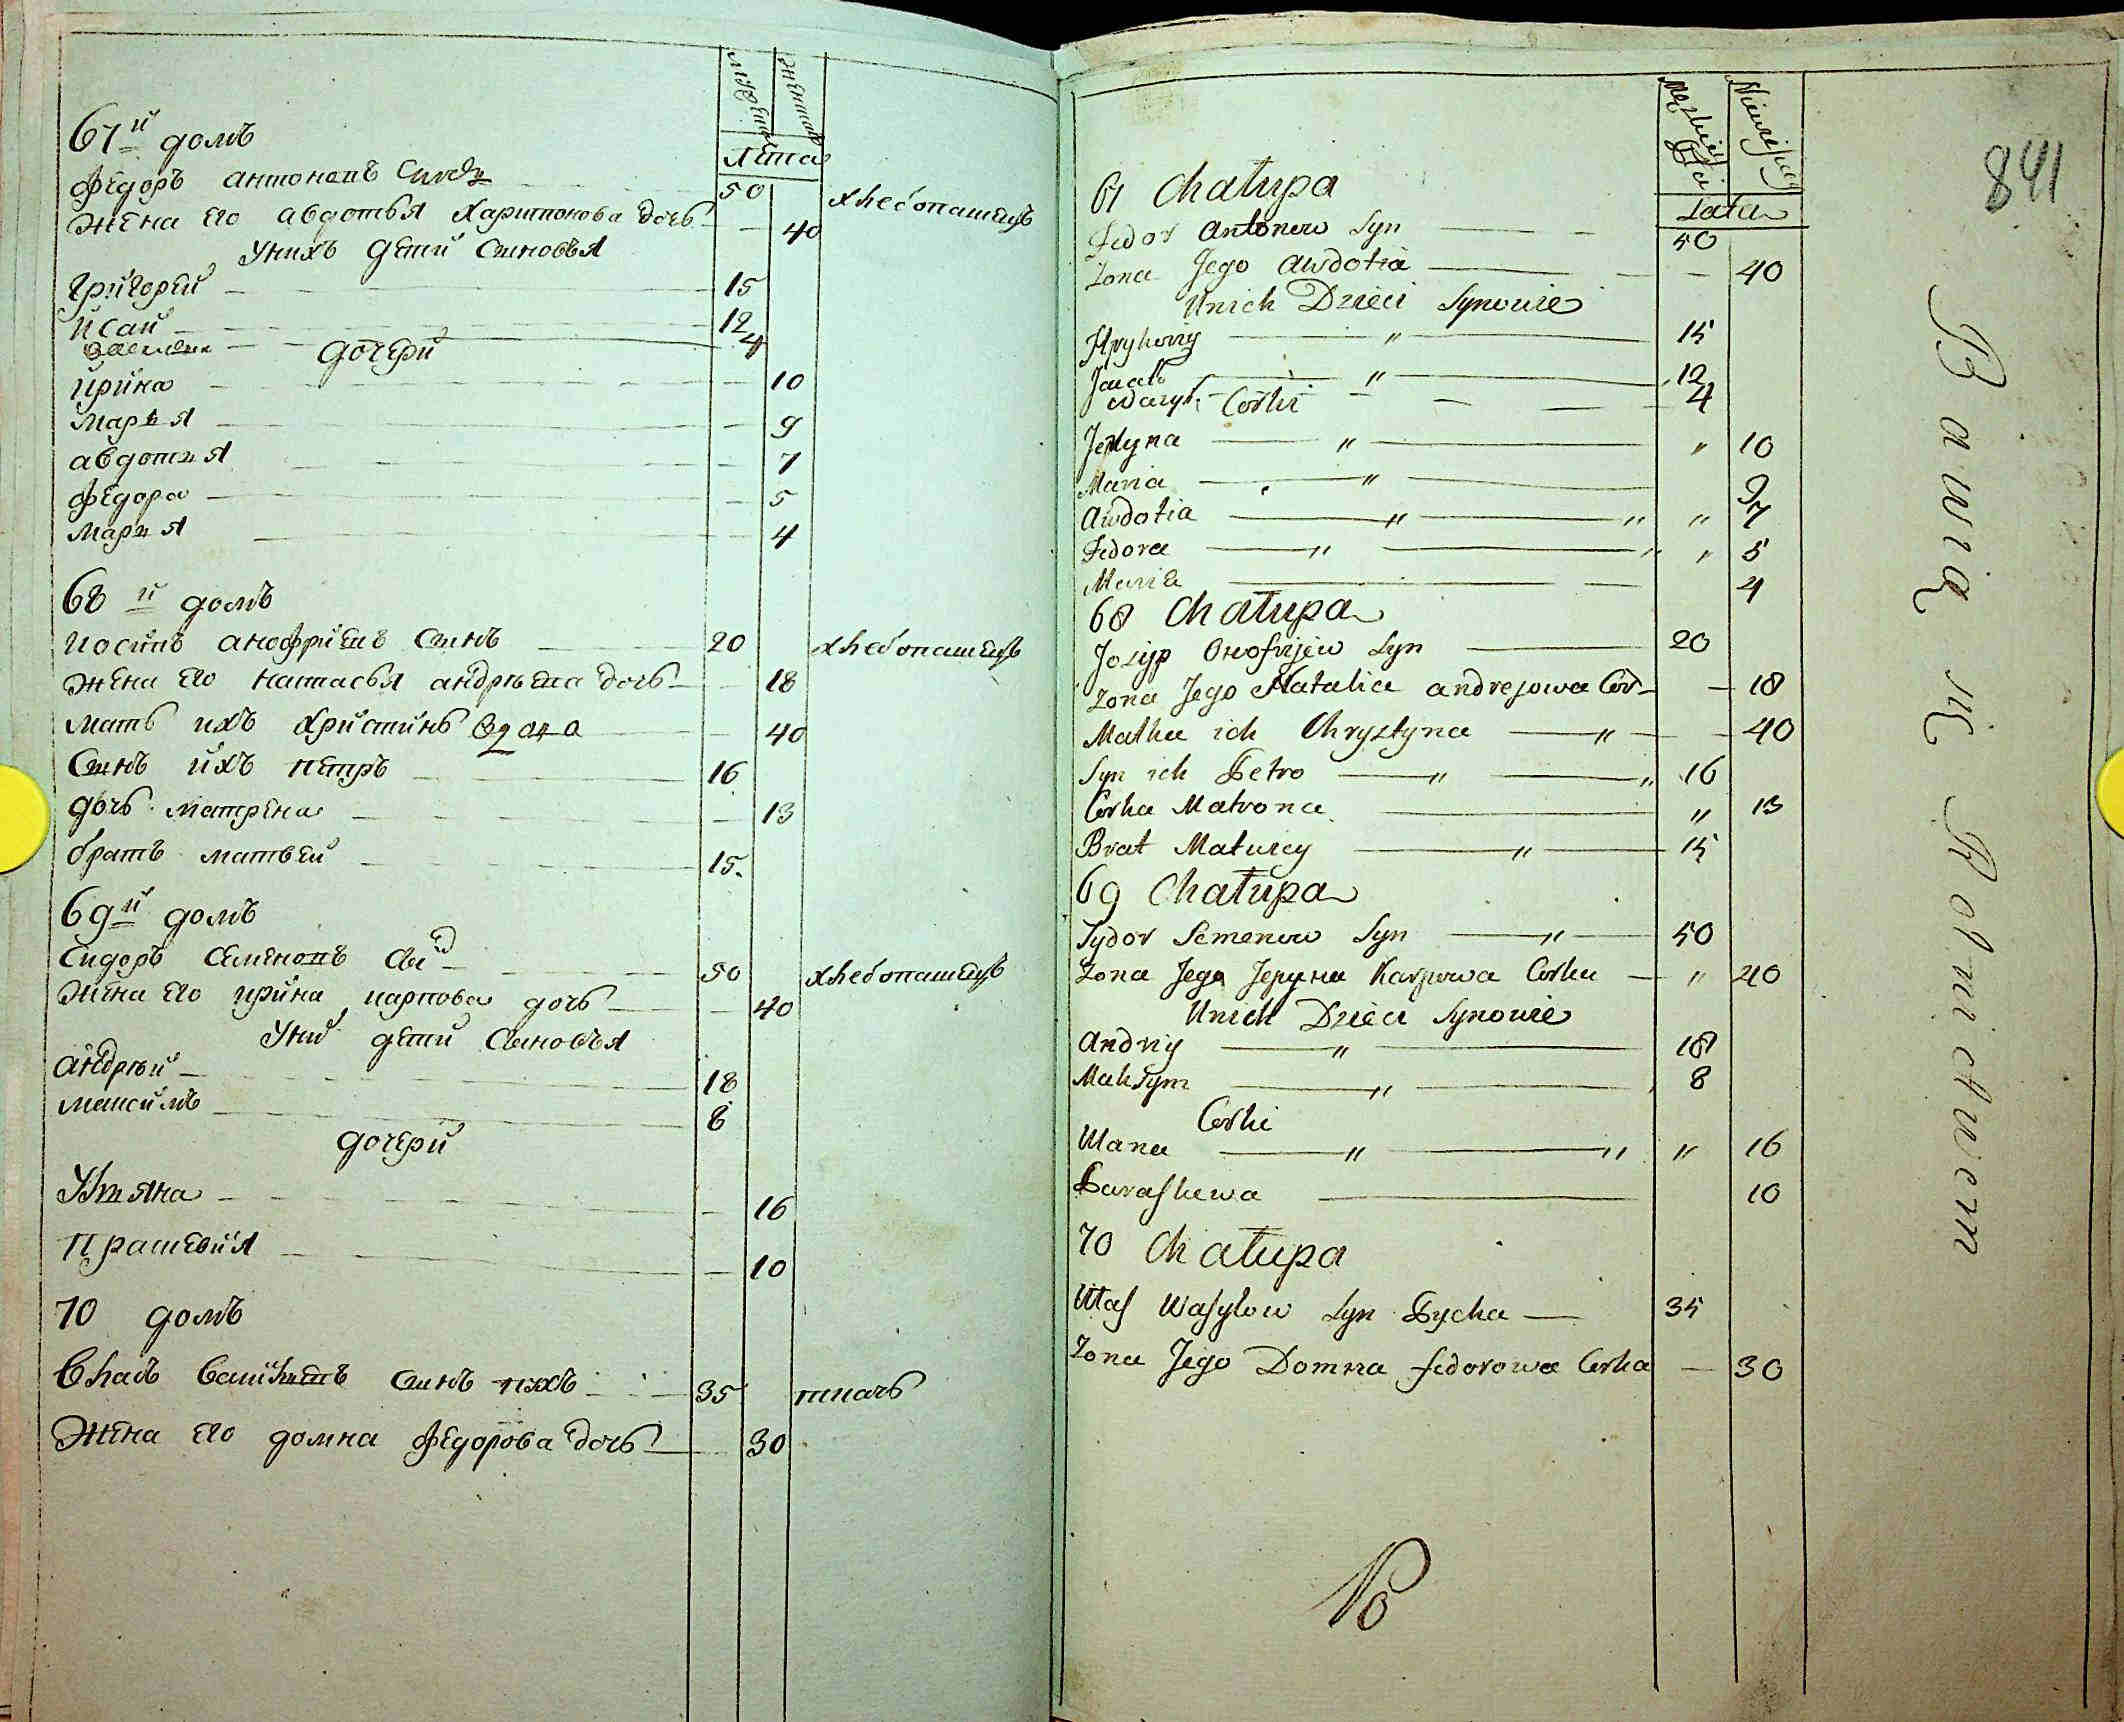 67й домъ
Федоръ антоновъ
50
хлебопашецъ
жена его авдотья харитонова дочь
40
Унихъ дети Сыновья
григорей
15
исай
12
василей
4
дочери
ирина
10
марья
9
авдотья
7
федора
5
марья
4
68й домъ
иосипъ анофриевъ сынъ
20
хлебопашецъ
жена его настасья андреева дочь
18
мать ихъ христина вдова
40
сынъ ихъ петръ
16
дочь матрена
13
братъ матвей
15.
69й домъ
Сидоръ семеновъ
50
хлебопашецъ
жена его ирина карпова дочь
40
Уних дети Сыновья
андрей
18
максимъ
8
дочери
Ульяна
16
Прасковия
10
70 домъ
Власъ васильевъ сынъ
35
ткачь
жена его домна федорова дочь
30
Męzkiej
Lata
67 Chałupa
Fedor Antonow Syn
50
Zona Jego Awdotia
40
Unich Dzieci Synowie
Hryhoriy
15
12
4
Corki
Jeryna
10
Maria
9
Awdotia
7
Fedora
5
Maria
4
68 Chałupa
Jozyp Onofrijew Syn
20
Zona Jego Natalia andrejowa Cor
18
Matka ich Chrystyna
40
Syn ich Petro
16
Corka Matrona
13
Brat Matwiey
15
69 Chałupa
Sydor Semenow Syn
50
Zona Jego Jeryna Karpowa Corka
40
Unich Dzieci Synowie
Andriy
18
Maksym
8
Corki
Ulana
16
Paraskewa
10
70 Chałupa
Wlas Wasylow Syn
35
Zona Jego Domna fedorowa Corka
30
841
Bawią się Rolnictwem